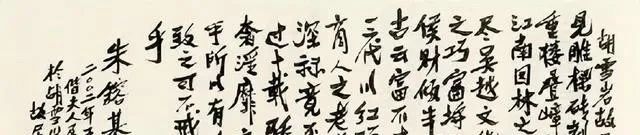 胡雪岩故
見雕樑砖刻
重楼叠嶂
江南园林之
尽吴越文
之巧富埒
侯财倾半
古云富不
三代以红
商人之老
深算竟不
过十载
奢淫靡
乎所以有
致之可不戒
乎
朱镕基
二〇〇二年
偕夫人
於胡雪岩
故居